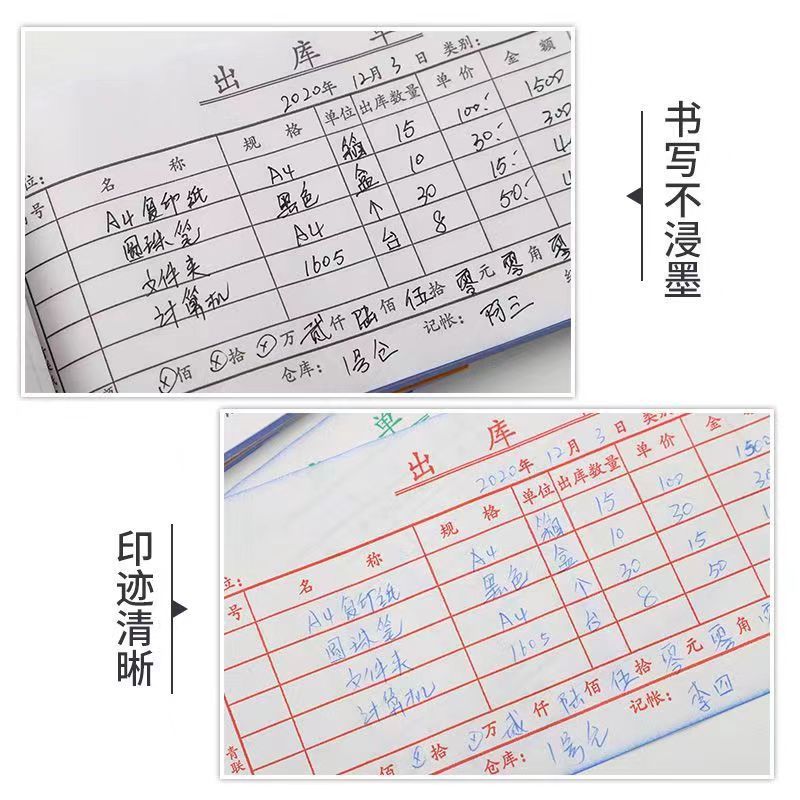 出 库 单
2020年 12月3日 类别:
名 称 规 格 单位 出库数量 单 价 金 额
A4复印纸 A4 箱 15 100.- 1500
圆珠笔 黑色 盒 10 30.- 300
文件夹 A4 个 30 15.-
计算机 1605 台 8 50.-
佰 拾 万 贰 仟 陆 佰 伍 拾 零 元 零 角 零
仓库: 1号仓 记帐:
书写不浸墨
单
出 库
2020年 12月3日 类别
名 称 规 格 单位 出库数量 单 价 金 额
A4复印纸 A4 箱 15 100 1500
圆珠笔 黑色 盒 10 30
文件夹 A4 个 30 15
计算机 1605 台 8 50
佰 拾 万 贰 仟 陆 佰 伍 拾 零 元 零 角
仓库: 1号仓 记帐: 李四
印迹清晰